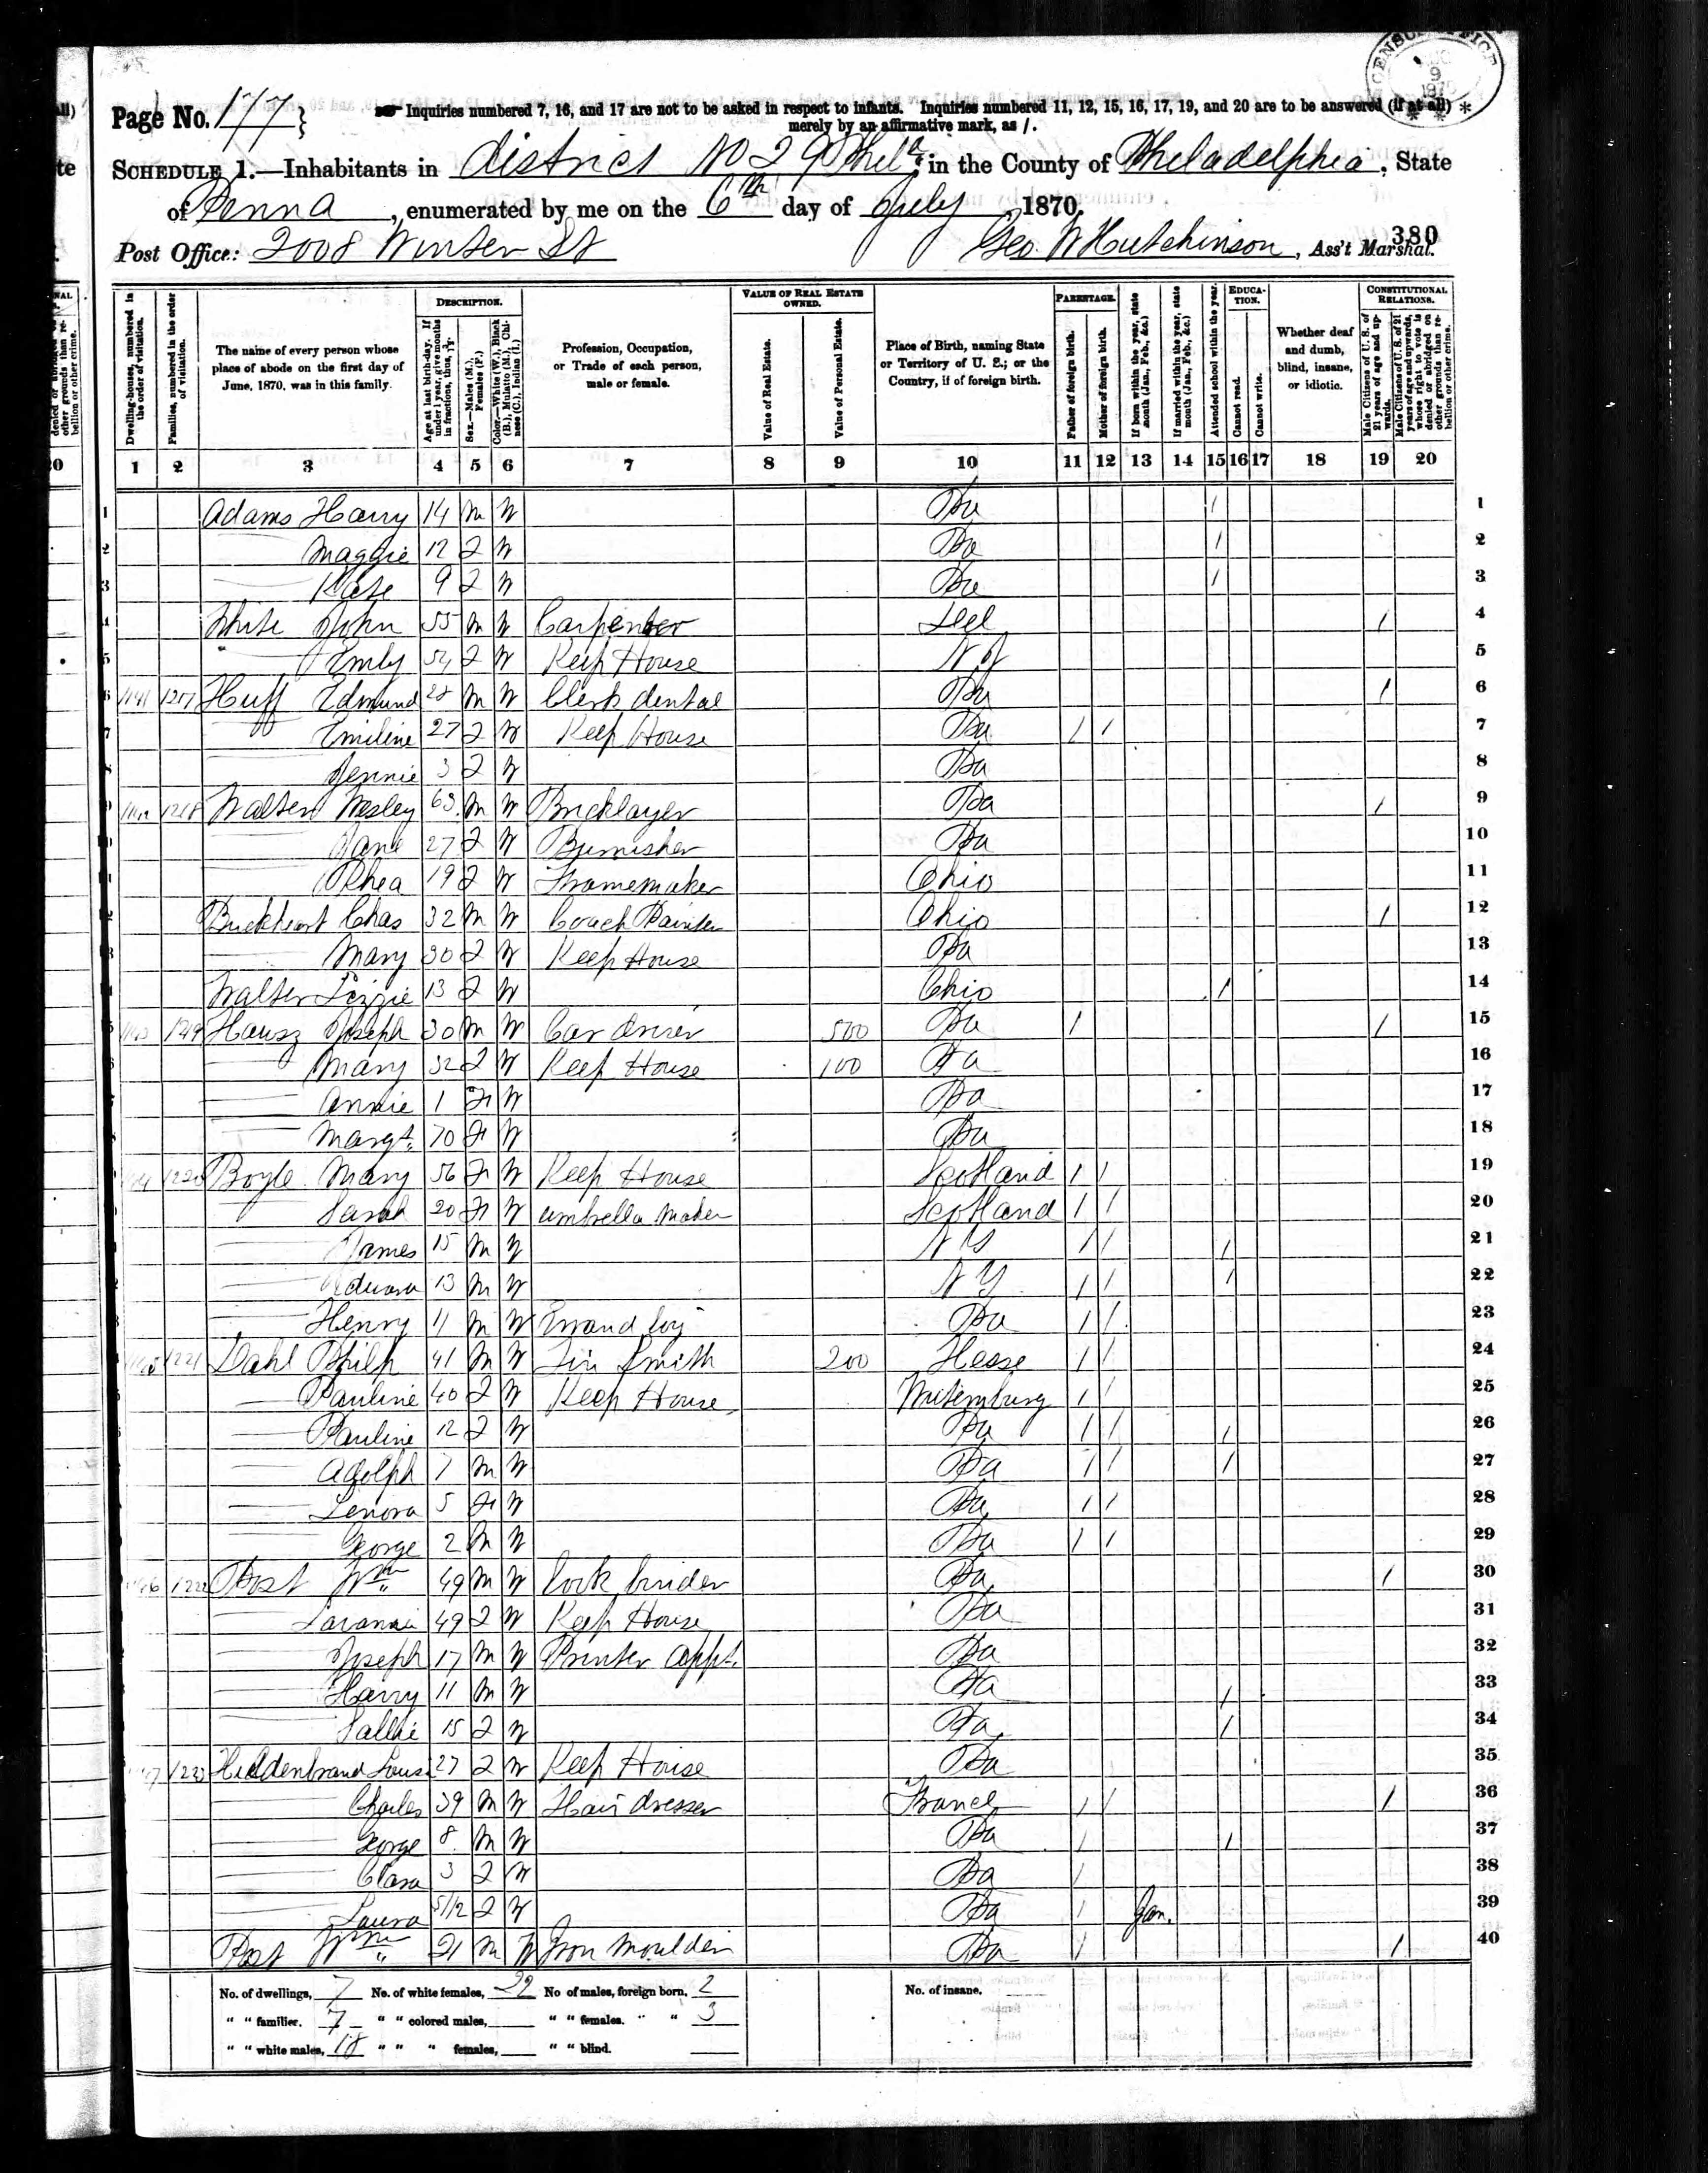 CENSUS OFFICE
AUG
9
Page No. 177
Inquiries numbered 7, 16, and 17 are not to be asked in respect to infants. Inquiries numbered 11, 12, 15, 16, 17, 19, and 20 are to be answered (if at all)
merely by an affirmative mark, as /.
SCHEDULE 1.—Inhabitants in district No 29 Phila, in the County of Philadelphia, State
of Penna, enumerated by me on the 6th day of July, 1870.
380
Post Office: 2008 Winter St Geo W Hutchinson, Ass't Marshal.
Dwelling-houses, numbered in the order of visitation.
Families, numbered in the order of visitation.
The name of every person whose place of abode on the first day of June, 1870, was in this family.
DESCRIPTION.
Age at last birth-day. If under 1 year, give months in fractions, thus, 3/12.
Sex.—Males (M.), Females (F.)
Color.—White (W.), Black (B.), Mulatto (M.), Chinese (C.), Indian (I.)
Profession, Occupation, or Trade of each person, male or female.
VALUE OF REAL ESTATE OWNED.
Value of Real Estate.
Value of Personal Estate.
Place of Birth, naming State or Territory of U. S.; or the Country, if of foreign birth.
PARENTAGE.
Father of foreign birth.
Mother of foreign birth.
If born within the year, state month (Jan., Feb., &c.)
If married within the year, state month (Jan., Feb., &c.)
Attended school within the year.
EDUCATION.
Cannot read.
Cannot write.
Whether deaf and dumb, blind, insane, or idiotic.
CONSTITUTIONAL RELATIONS.
Male Citizens of U. S. of 21 years of age and upwards.
Male Citizens of U. S. of 21 years of age and upwards, whose right to vote is denied or abridged on other grounds than rebellion or other crime.
1 2 3 4 5 6 7 8 9 10 11 12 13 14 15 16 17 18 19 20
1 Adams Harry 14 M W Pa / 1
2 Maggie 12 F W Pa / 2
3 Kate 9 F W Pa / 3
4 White John 55 M W Carpenter Del / 4
5 Emly 54 F W Keep House N J 5
6 1141 1217 Huff Edmund 28 M W Clerk dental Pa / 6
7 Emiline 27 F W Keep House Pa / / 7
8 Jennie 3 F W Pa 8
9 1142 1218 Walter Wesley 63 M W Bricklayer Pa / 9
Jane 27 F W Burnisher Pa 10
Rhea 19 F W Framemaker Ohio 11
Buckheart Chas 32 M W Coach Painter Ohio / 12
Mary 30 F W Keep House Pa 13
Walter Lizzie 13 F W Ohio / 14
1143 1219 Hausz Joseph 30 M W Car driver 500 Pa / / 15
Mary 32 F W Keep House 100 Pa 16
Annie 1 F W Pa 17
Margt. 70 F W Pa 18
1144 1220 Boyle Mary 56 F W Keep House Scotland / / 19
Sarah 20 F W umbrella maker Scotland / / 20
James 15 M W N Y / / / 21
Edward 13 M W N Y / / / 22
Henry 11 M W Errand boy Pa / / 23
1145 1221 Dahl Philp 41 M W Tin Smith 200 Hesse / / 24
Pauline 40 F W Keep House Wutemburg / / 25
Pauline 12 F W Pa / / / 26
Adolph 7 M W Pa / / / 27
Lenora 5 F W Pa / / 28
George 2 M W Pa / / 29
1146 1222 Post Wm 49 M W book binder Pa / 30
49 F W Keep House Pa 31
Joseph 17 M W Printer appt. Pa 32
Harry 11 M W Pa / 33
Sallie 15 F W Pa / 34
1223 Hildenbrand Louis 27 F W Keep House Pa 35
Charles 39 M W Hair dresser France / / / 36
George 8 M W Pa / / 37
Clara 3 F W Pa / 38
Laura 5/12 F W Pa / Jan. 39
Post Wm 21 M W Iron Moulder Pa / / 40
No. of dwellings, 7 No. of white females, 22 No of males, foreign born, 2 No. of insane,
" " families. 7 " " colored males, " " females. " " 3
" " white males, 18 " " " females, " " blind.